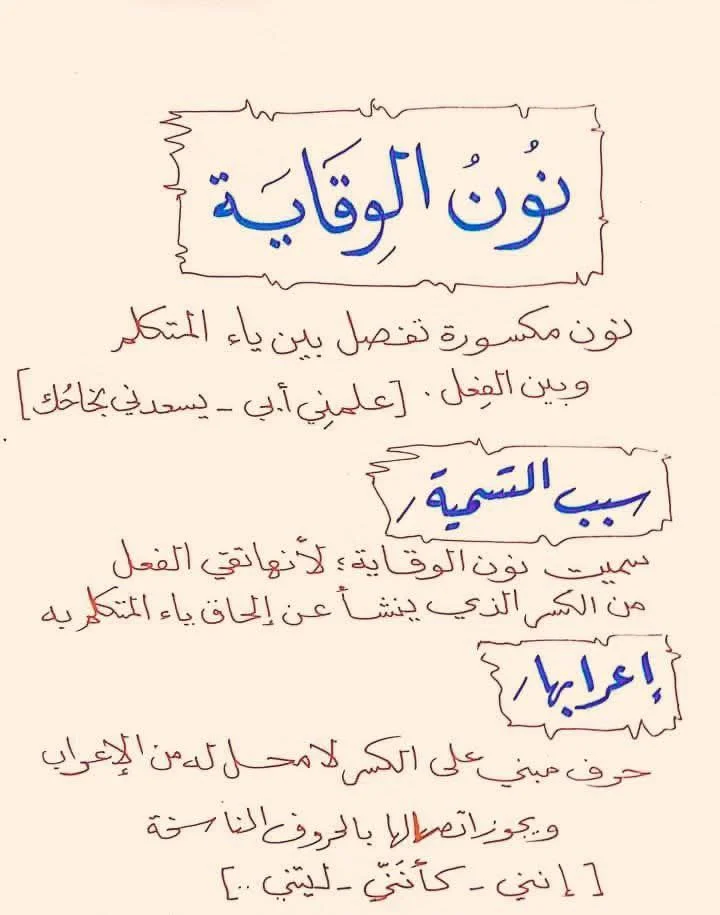 نُونُ الوِقَايَة
نون مكسورة تفصل بين ياء المتكلم
وبين الفِعل. [علمنِي أبي - يسعدني نجاحُك]
سبب التسمية /
سميت نون الوقاية؛ لأنها تقي الفعل
من الكسر الذي ينشأ عن إلحاق ياء المتكلم به
إعرابها /
حرف مبني على الكسر لا محل له من الإعراب
ويجوز اتصالها بالحروف الناسخة
[إنني - كأنَنّي - ليتني ..]